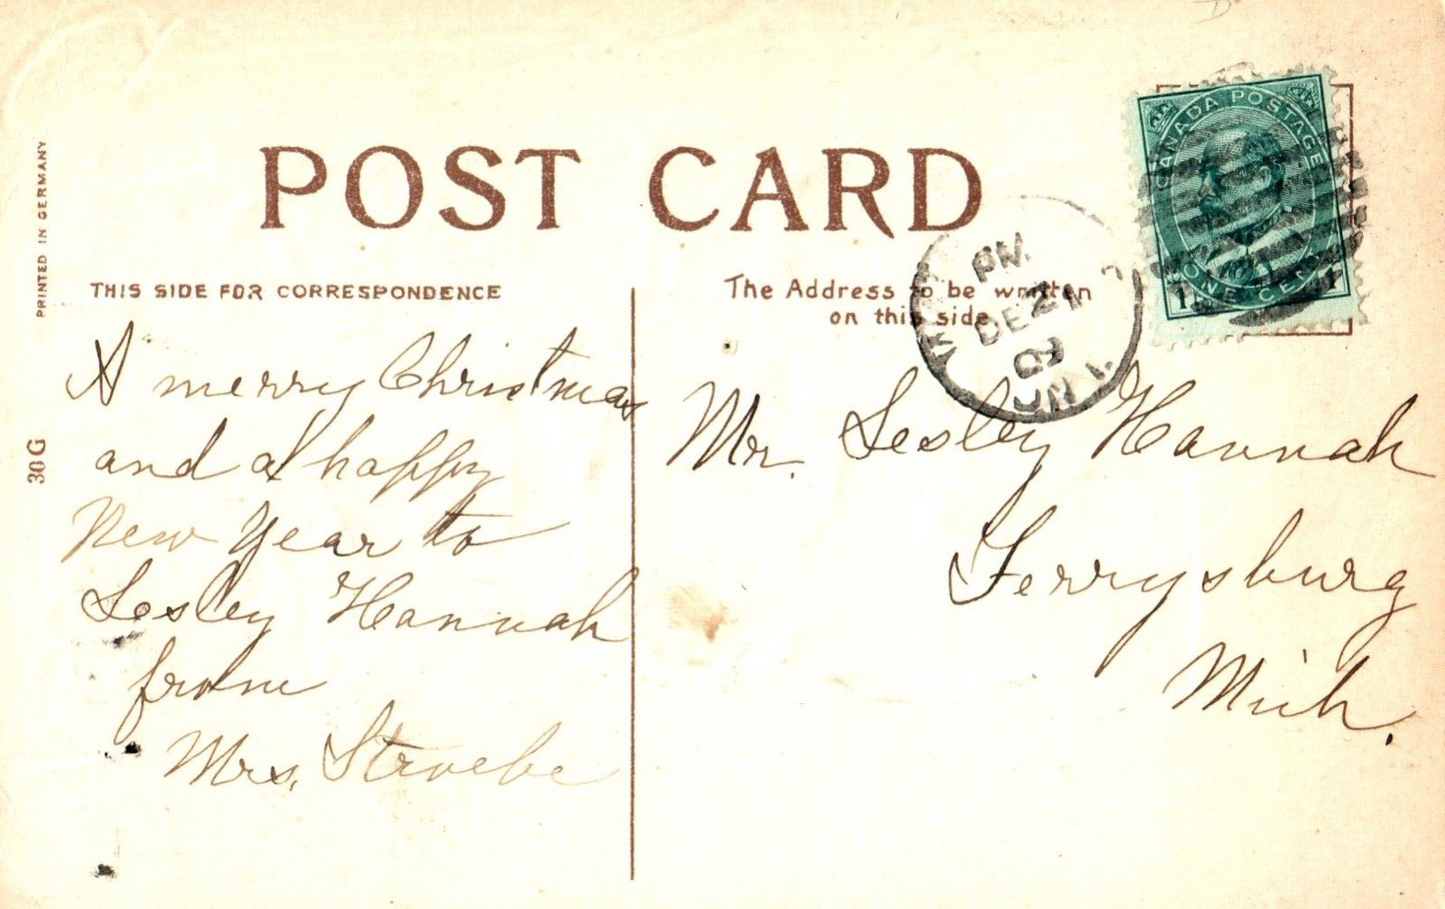 POST CARD
PRINTED IN GERMANY
30 G
THIS SIDE FOR CORRESPONDENCE
A merry Christmas
and a happy
New Year to
Lesley Hannah
from
Mrs. Stroebe
The Address to be written
on this side
CANADA POSTAGE
ONE CENT
1 1
PM
DE 21
09
ONT.
Mr. Lesley Hannah
Ferrysburg
Mich.